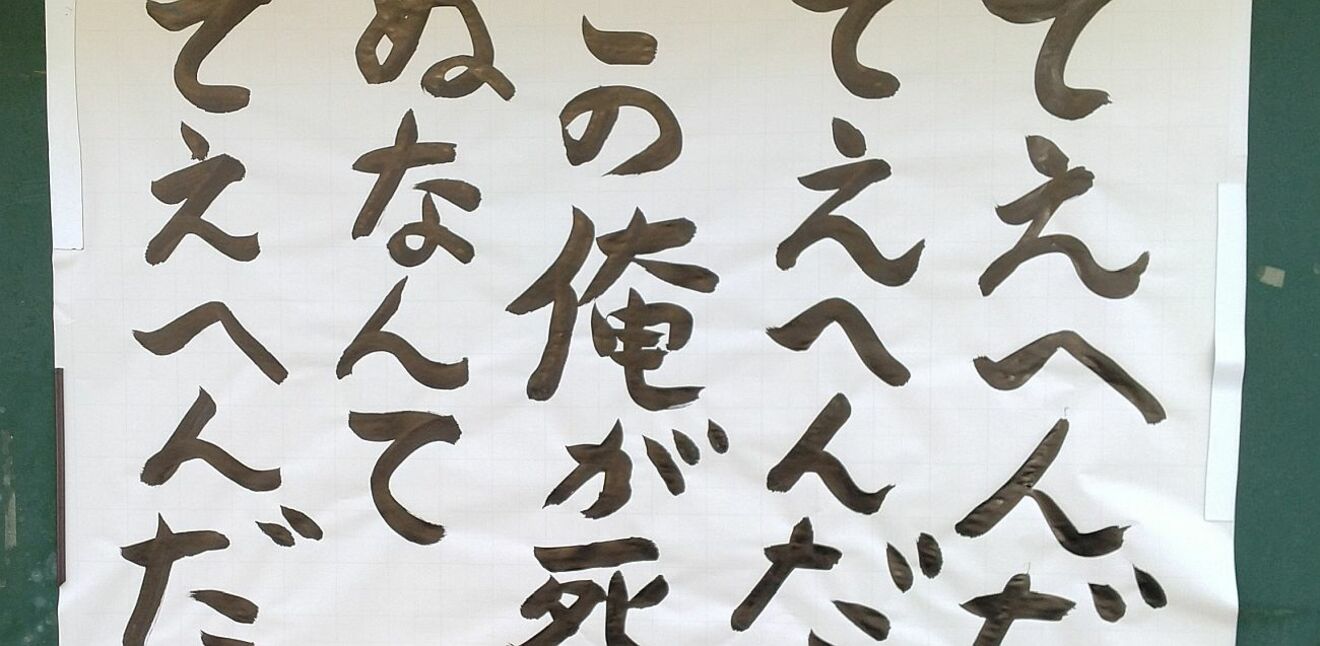 てえへんだ
てえへんだ
この俺が死
ぬなんて
てえへんだ